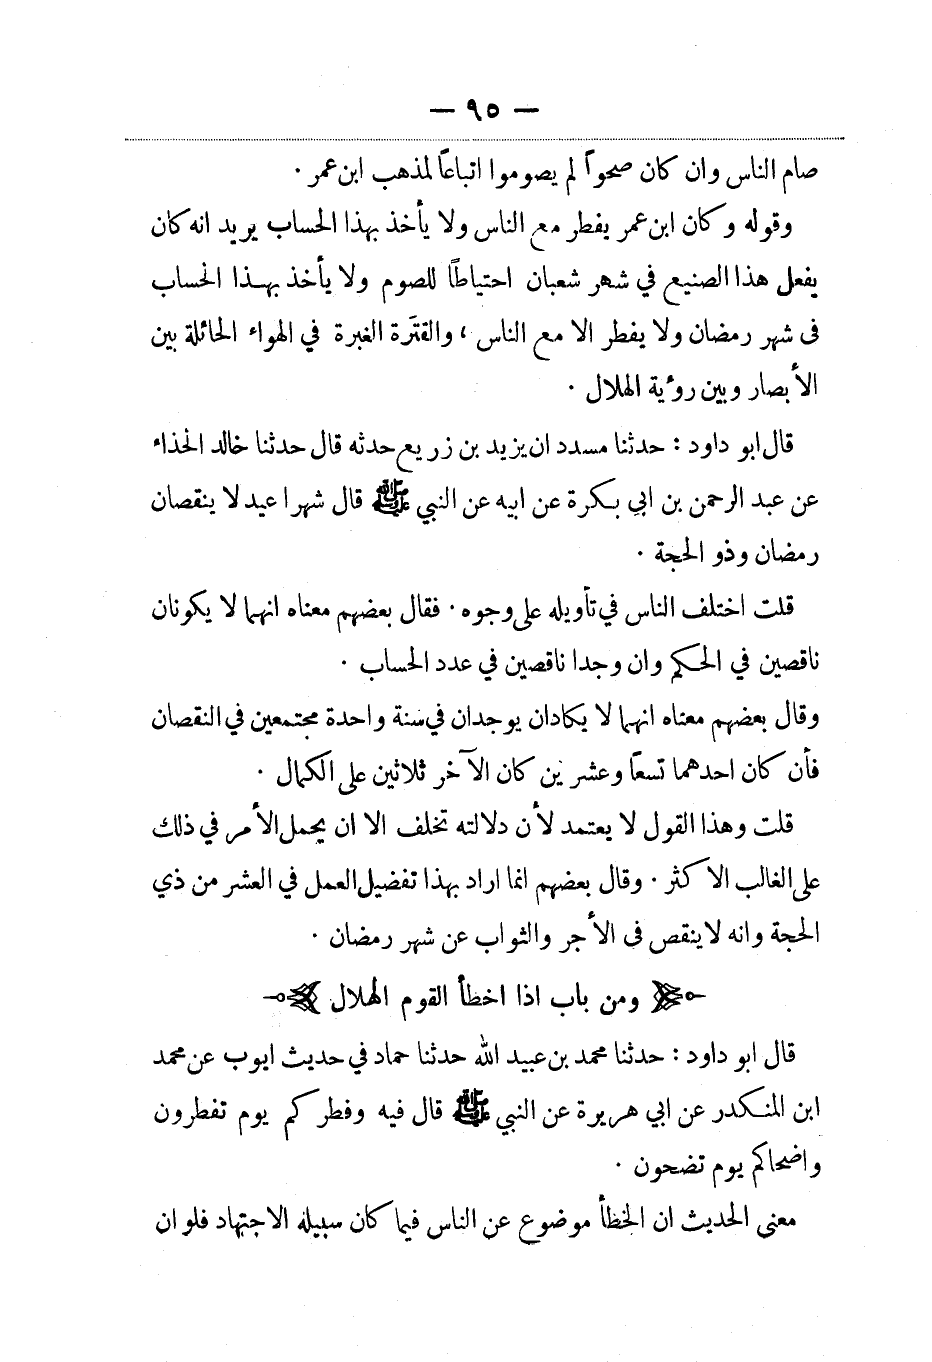 — ٩٥ —
صام الناس وان كان صحواً لم يصوموا اتباعاً لمذهب ابن عمر ·
وقوله وكان ابن عمر يفطر مع الناس ولا يأخذ بهذا الحساب يريد انه كان
يفعل هذا الصنيع في شهر شعبان احتياطاً للصوم ولا يأخذ بهذا الحساب
فى شهر رمضان ولا يفطر الا مع الناس ، والقتَرة الغبرة في الهواء الحائلة بين
الأبصار وبين رؤية الهلال ·
قال ابو داود : حدثنا مسدد ان يزيد بن زريع حدثه قال حدثنا خالد الحذاء
عن عبد الرحمن بن ابي بكرة عن ابيه عن النبي ﷺ قال شهرا عيد لا ينقصان
رمضان وذو الحجة ·
قلت اختلف الناس في تأويله على وجوه · فقال بعضهم معناه انهما لا يكونان
ناقصين في الحكم وان وجدا ناقصين في عدد الحساب ·
وقال بعضهم معناه انهما لا يكادان يوجدان في سنة واحدة مجتمعين في النقصان
فأن كان احدهما تسعاً وعشرين كان الآخر ثلاثين على الكمال ·
قلت وهذا القول لا يعتمد لأن دلالته تخلف الا ان يحمل الأمر في ذلك
على الغالب الاكثر · وقال بعضهم انما اراد بهذا تفضيل العمل في العشر من ذي
الحجة وانه لا ينقص فى الأجر والثواب عن شهر رمضان ·
ومن باب اذا اخطأ القوم الهلال
قال ابو داود : حدثنا محمد بن عبيد الله حدثنا حماد في حديث ايوب عن محمد
ابن المنكدر عن ابي هريرة عن النبي ﷺ قال فيه وفطركم يوم تفطرون
واضحاكم يوم تضحون ·
معنى الحديث ان الخطأ موضوع عن الناس فيما كان سبيله الاجتهاد فلو ان